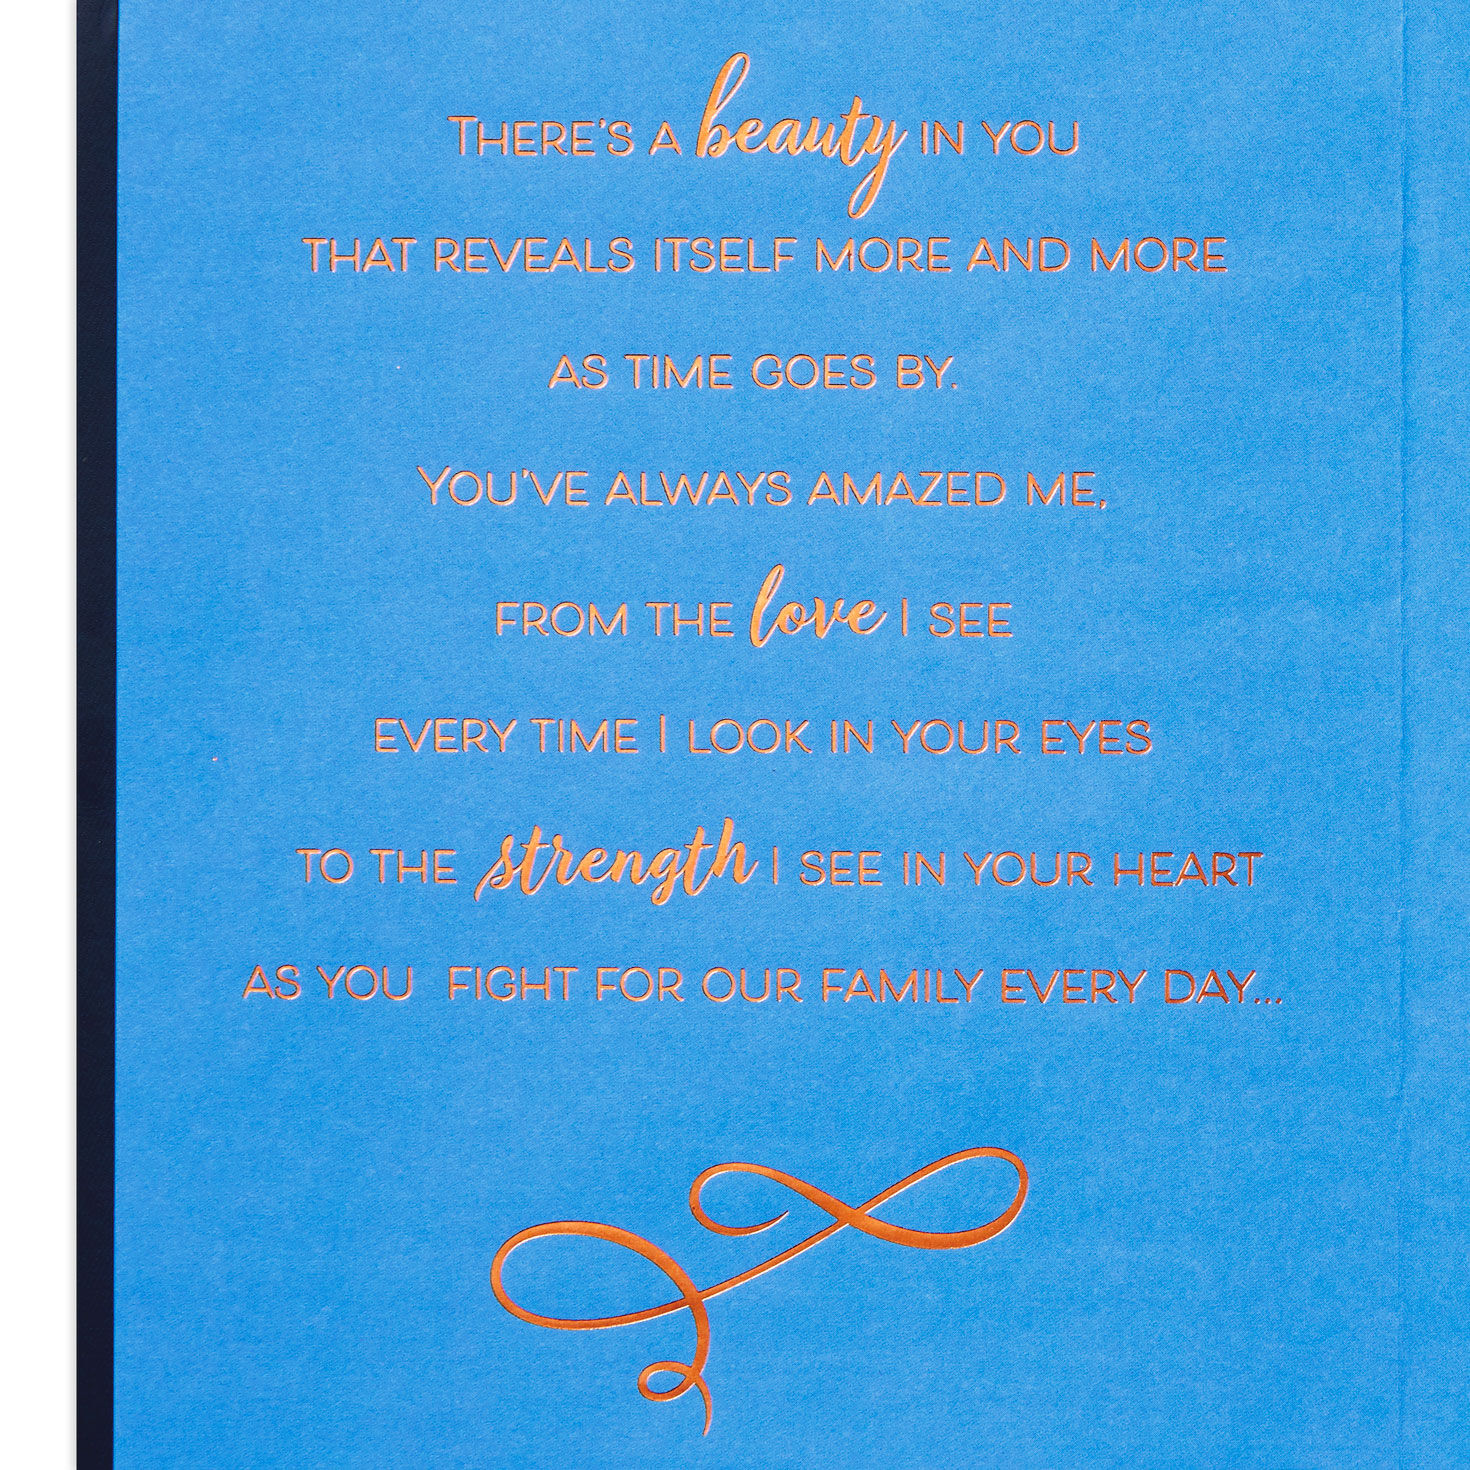 THERE'S A beauty IN YOU
THAT REVEALS ITSELF MORE AND MORE
AS TIME GOES BY.
YOU'VE ALWAYS AMAZED ME,
FROM THE love I SEE
EVERY TIME I LOOK IN YOUR EYES
TO THE strength I SEE IN YOUR HEART
AS YOU FIGHT FOR OUR FAMILY EVERY DAY...